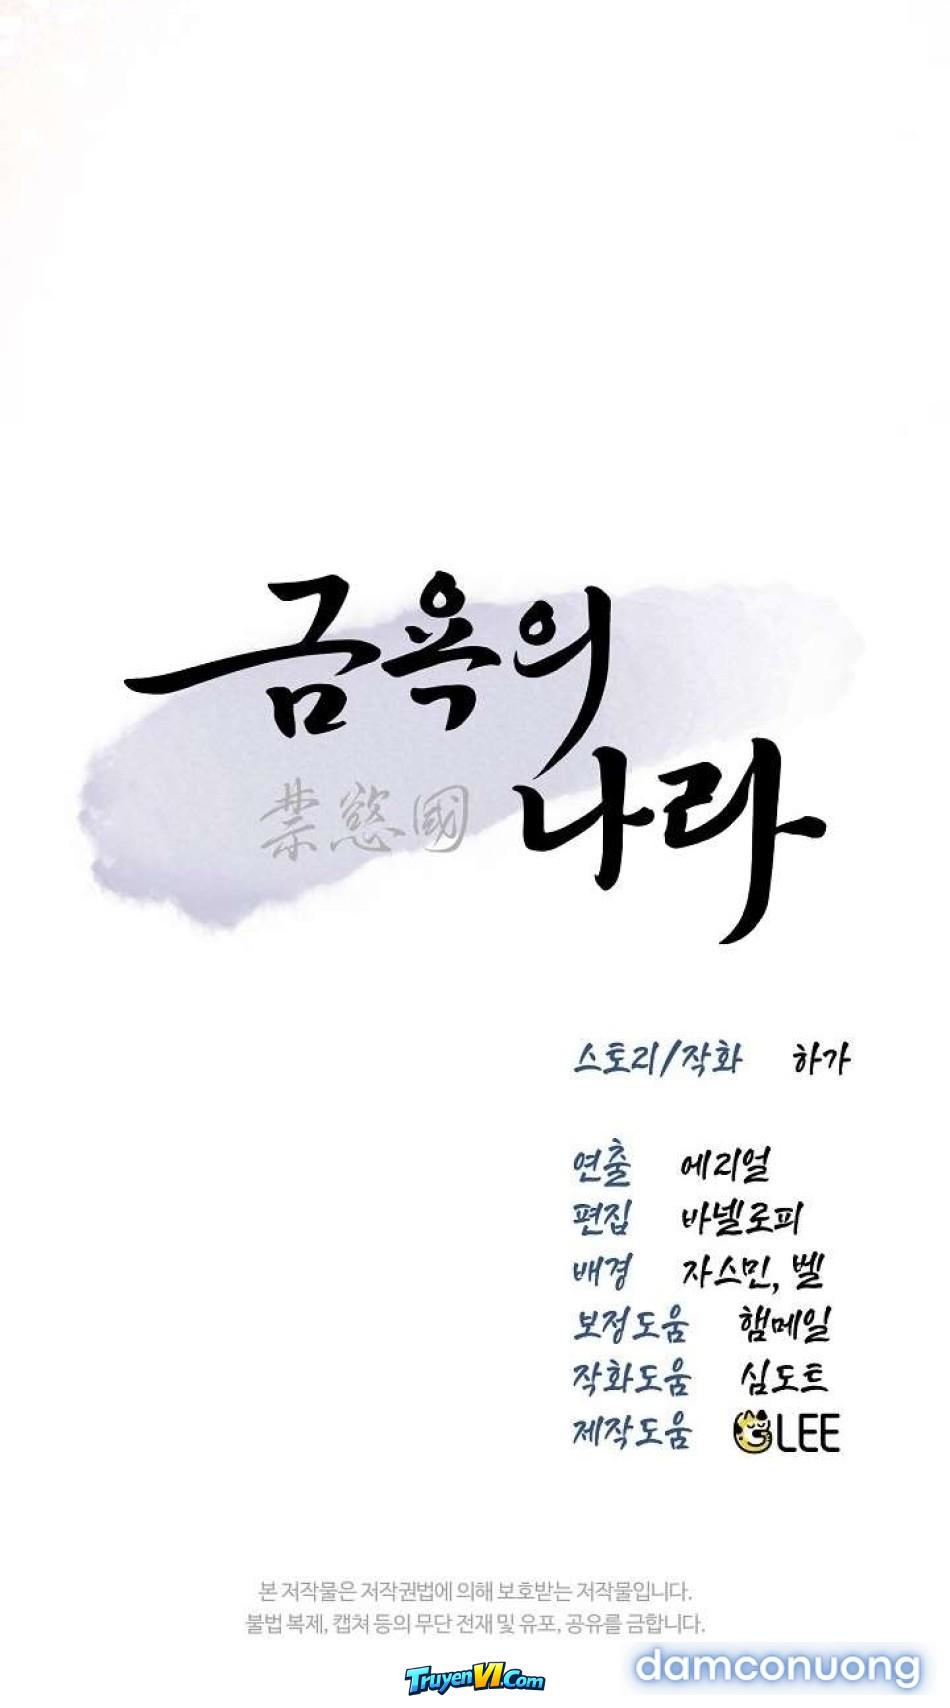 금욕의
나라
禁慾國
스토리/작화 하가
연출 에리얼
편집 바넬로피
배경 자스민, 벨
보정도움 햄메일
작화도움 심도트
제작도움 GLEE
본 저작물은 저작권법에 의해 보호받는 저작물입니다.
불법 복제, 캡쳐 등의 무단 전재 및 유포, 공유를 금합니다.
TruyenVI.Com
damconuong